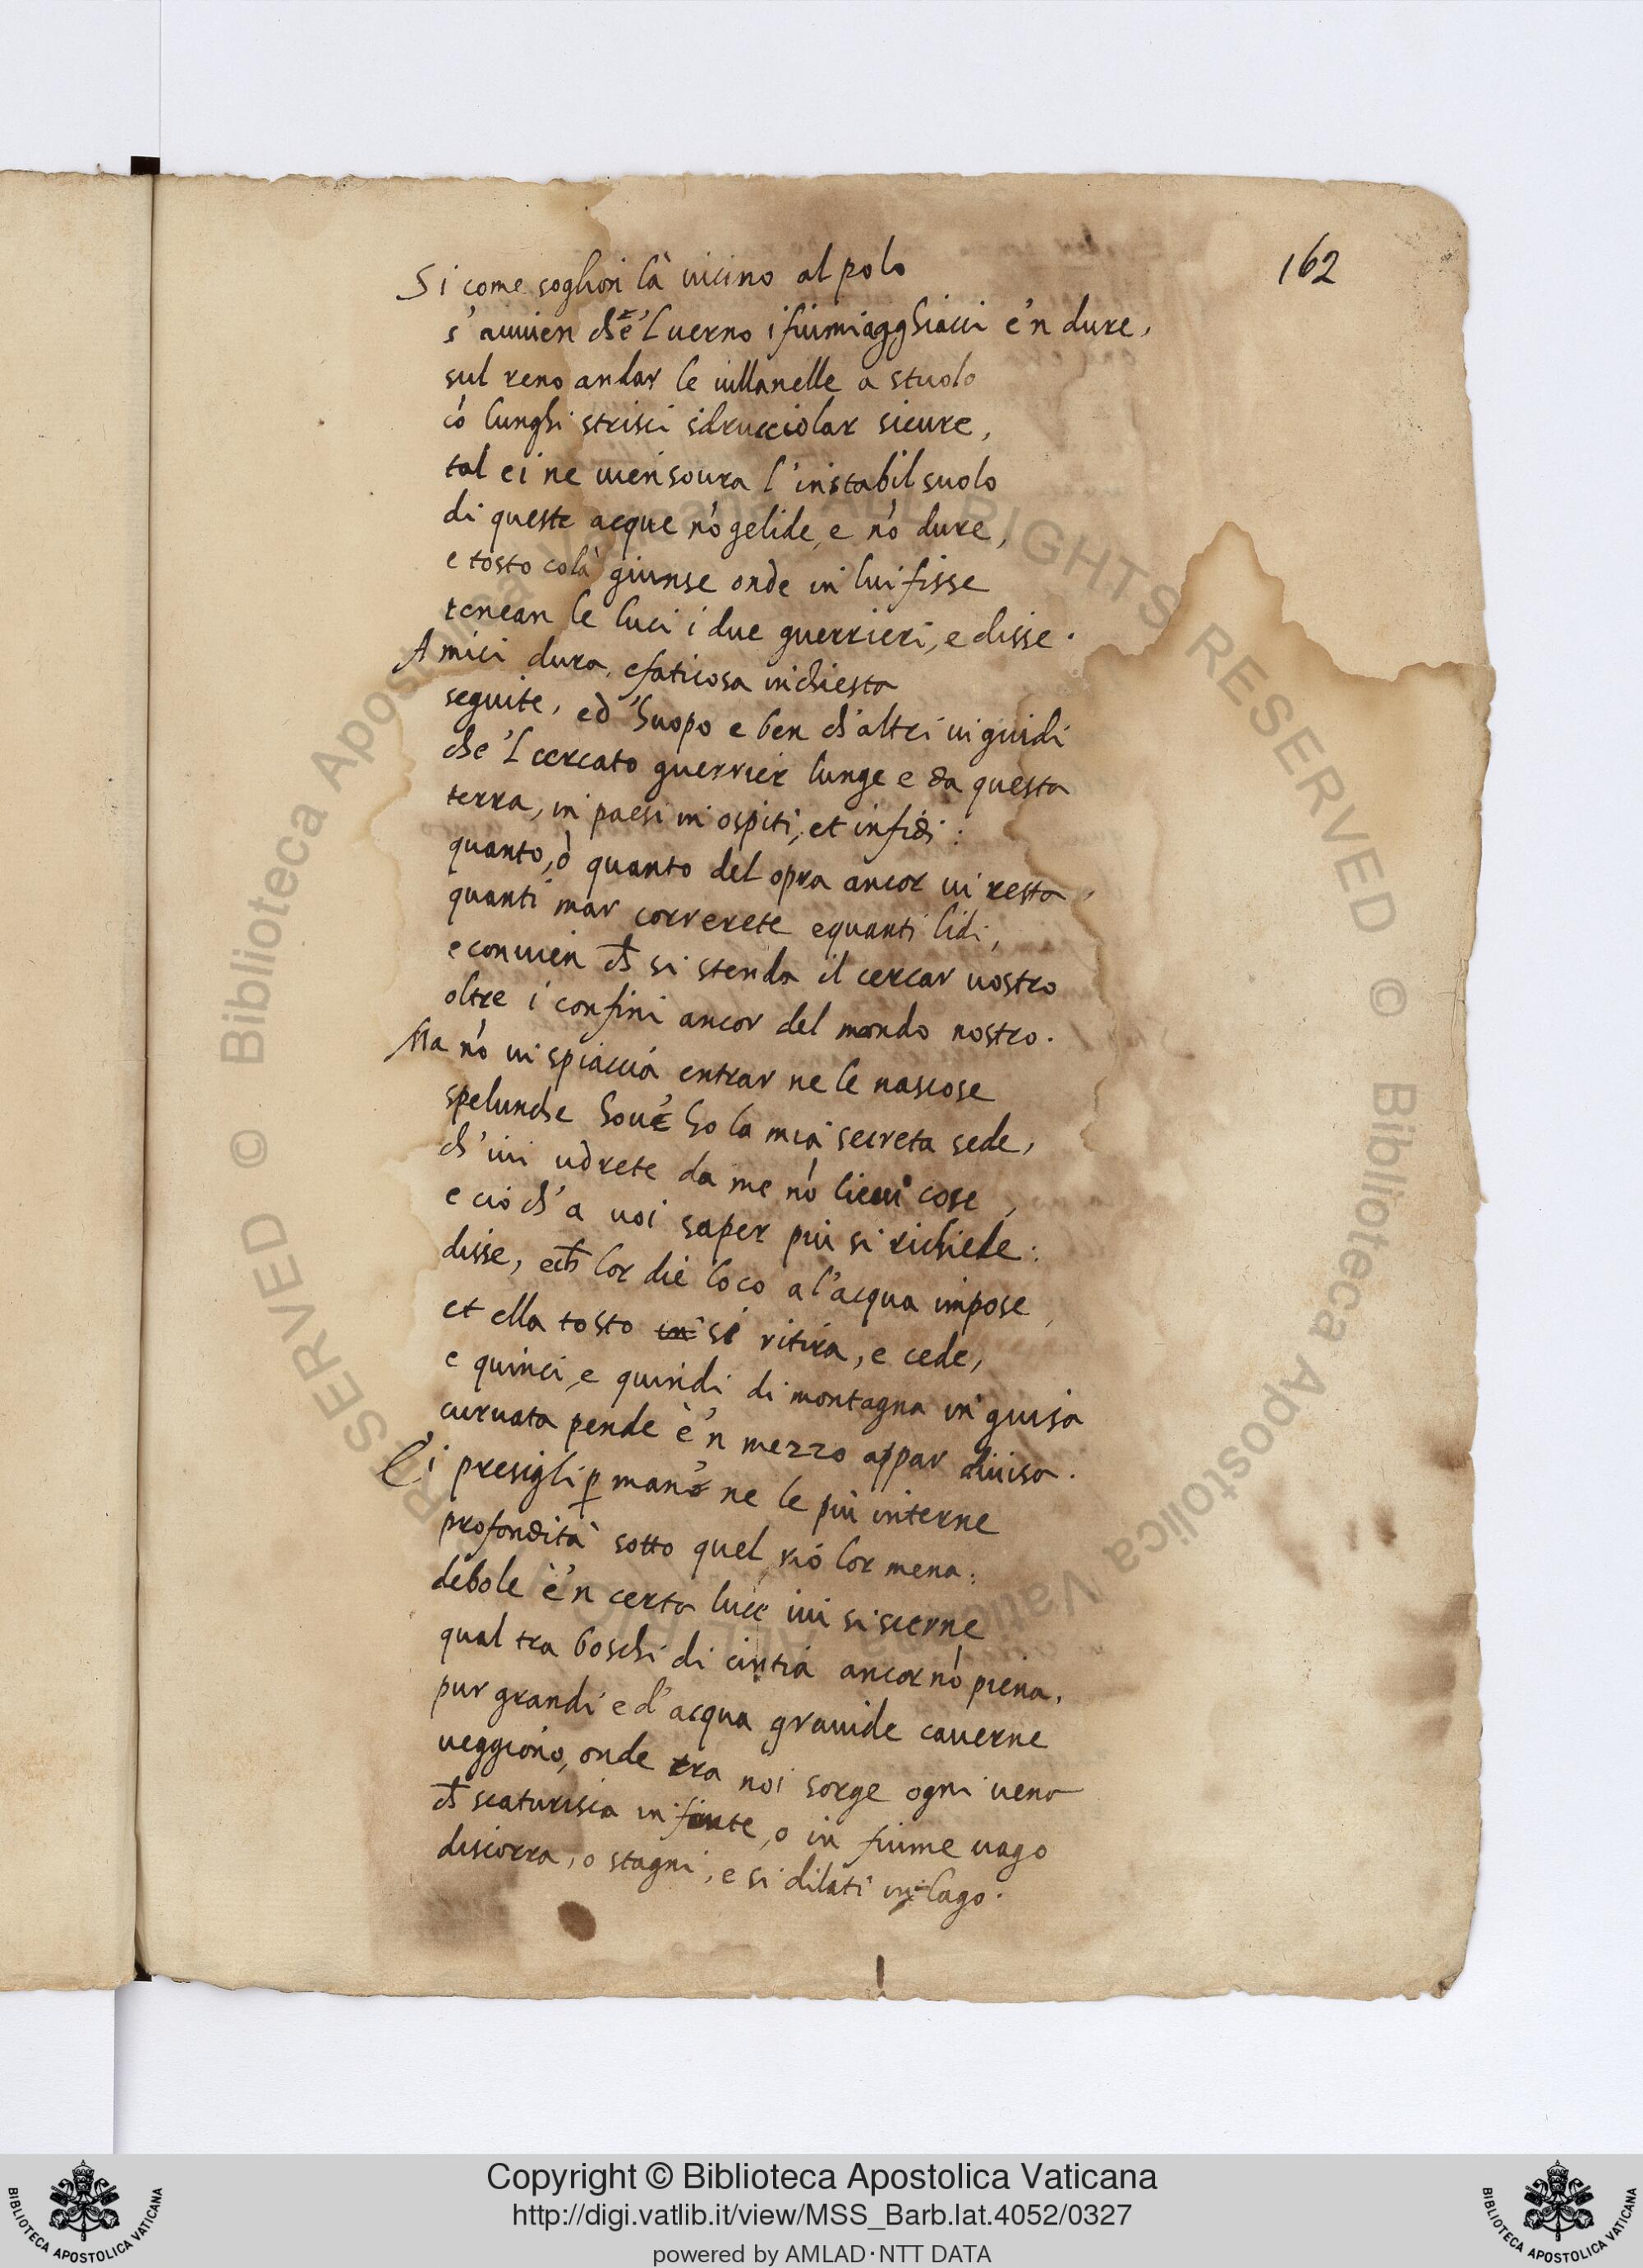 162
Si come soglion là uicino al polo
s'auuien ch'el uerno i fiumi agghiacci e 'n dure,
sul reno andar le uillanelle a stuolo
cō lunghi strisci sdrucciolar sicure,
tal ei ne uien soura l'instabil suolo
di queste acque nō gelide, e nō dure,
e tosto colà giunse onde in lui fisse
tenean le luci i due guerrieri, e disse.
Amici dura, e faticosa inchiesta
seguite, ed huopo e ben ch'altri ui guidi
che 'l cercato guerrier lunge e da questa
terra, in paesi in ospiti, et infidi:
quanto, ò quanto del opra ancor ui resta,
quanti mar correrete e quanti lidi,
e conuien ch̄ si stenda il cercar uostro
oltre i confini ancor del mondo nostro.
Ma nō ui spiaccia entrar ne le nascose
spelunche hou'è ho la mia secreta sede,
ch'iui udrete da me nō lieui cose,
e ciò ch'a uoi saper più si richiede:
disse, ech̄ lor die loco a l'acqua impose,
et ella tosto si ritira, e cede,
e quinci, e quindi di montagna in guisa
curuata pende e 'n mezzo appar diuisa.
Ei presigli ꝑ mano ne le più interne
profondità sotto quel rio lor mena:
debole e 'n certa luce iui si scerne
qual tra boschi di cintia ancor nō piena,
pur grandi e d'acqua grauide cauerne
ueggiono, onde tra noi sorge ogni uena
ch̄ scaturisca in fonte, o in fiume uago
discorra, o stagni, e si dilati in lago.
© Biblioteca Apostolica Vaticana ALL RIGHTS RESERVED
© Biblioteca Apostolica Vaticana ALL RIGHTS RESERVED
BIBLIOTECA APOSTOLICA VATICANA
Copyright © Biblioteca Apostolica Vaticana
http://digi.vatlib.it/view/MSS_Barb.lat.4052/0327
powered by AMLAD·NTT DATA
BIBLIOTECA APOSTOLICA VATICANA